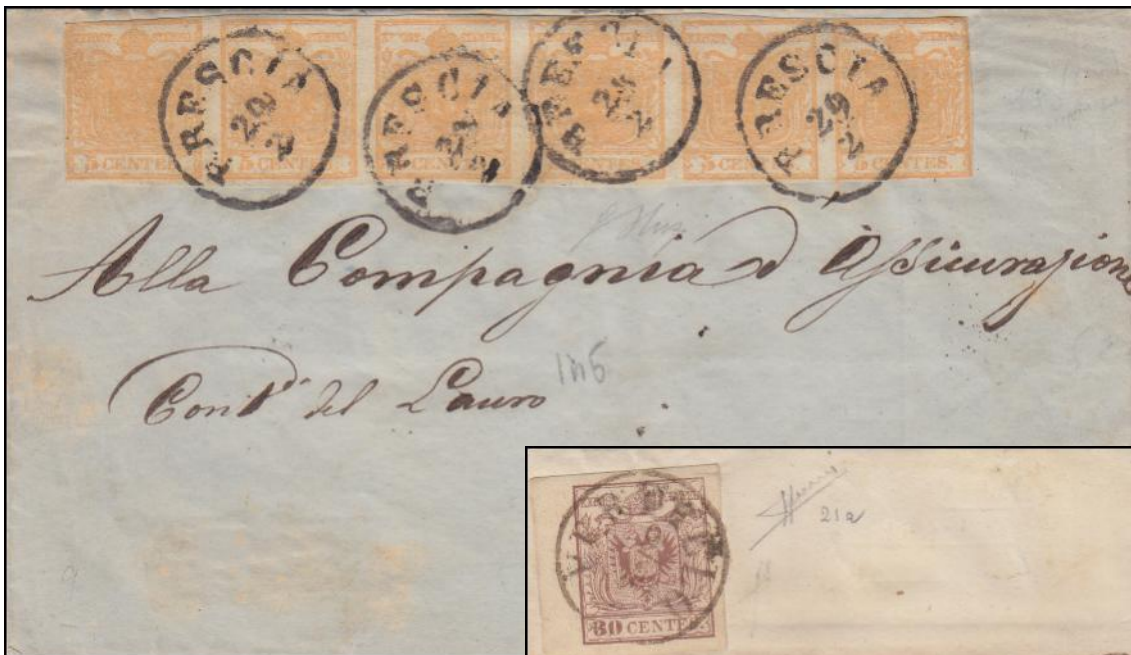 5 CENTES. 5 CENTES. CENTES. CENTES. 5 CENTES. 5 CENTES.
BRESCIA 29 2
BRESCIA
BRESCIA
BRESCIA 29 2
Alla Compagnia d'Assicurazione
Cont.ª del Lauro
146
21a
30 CENTES.